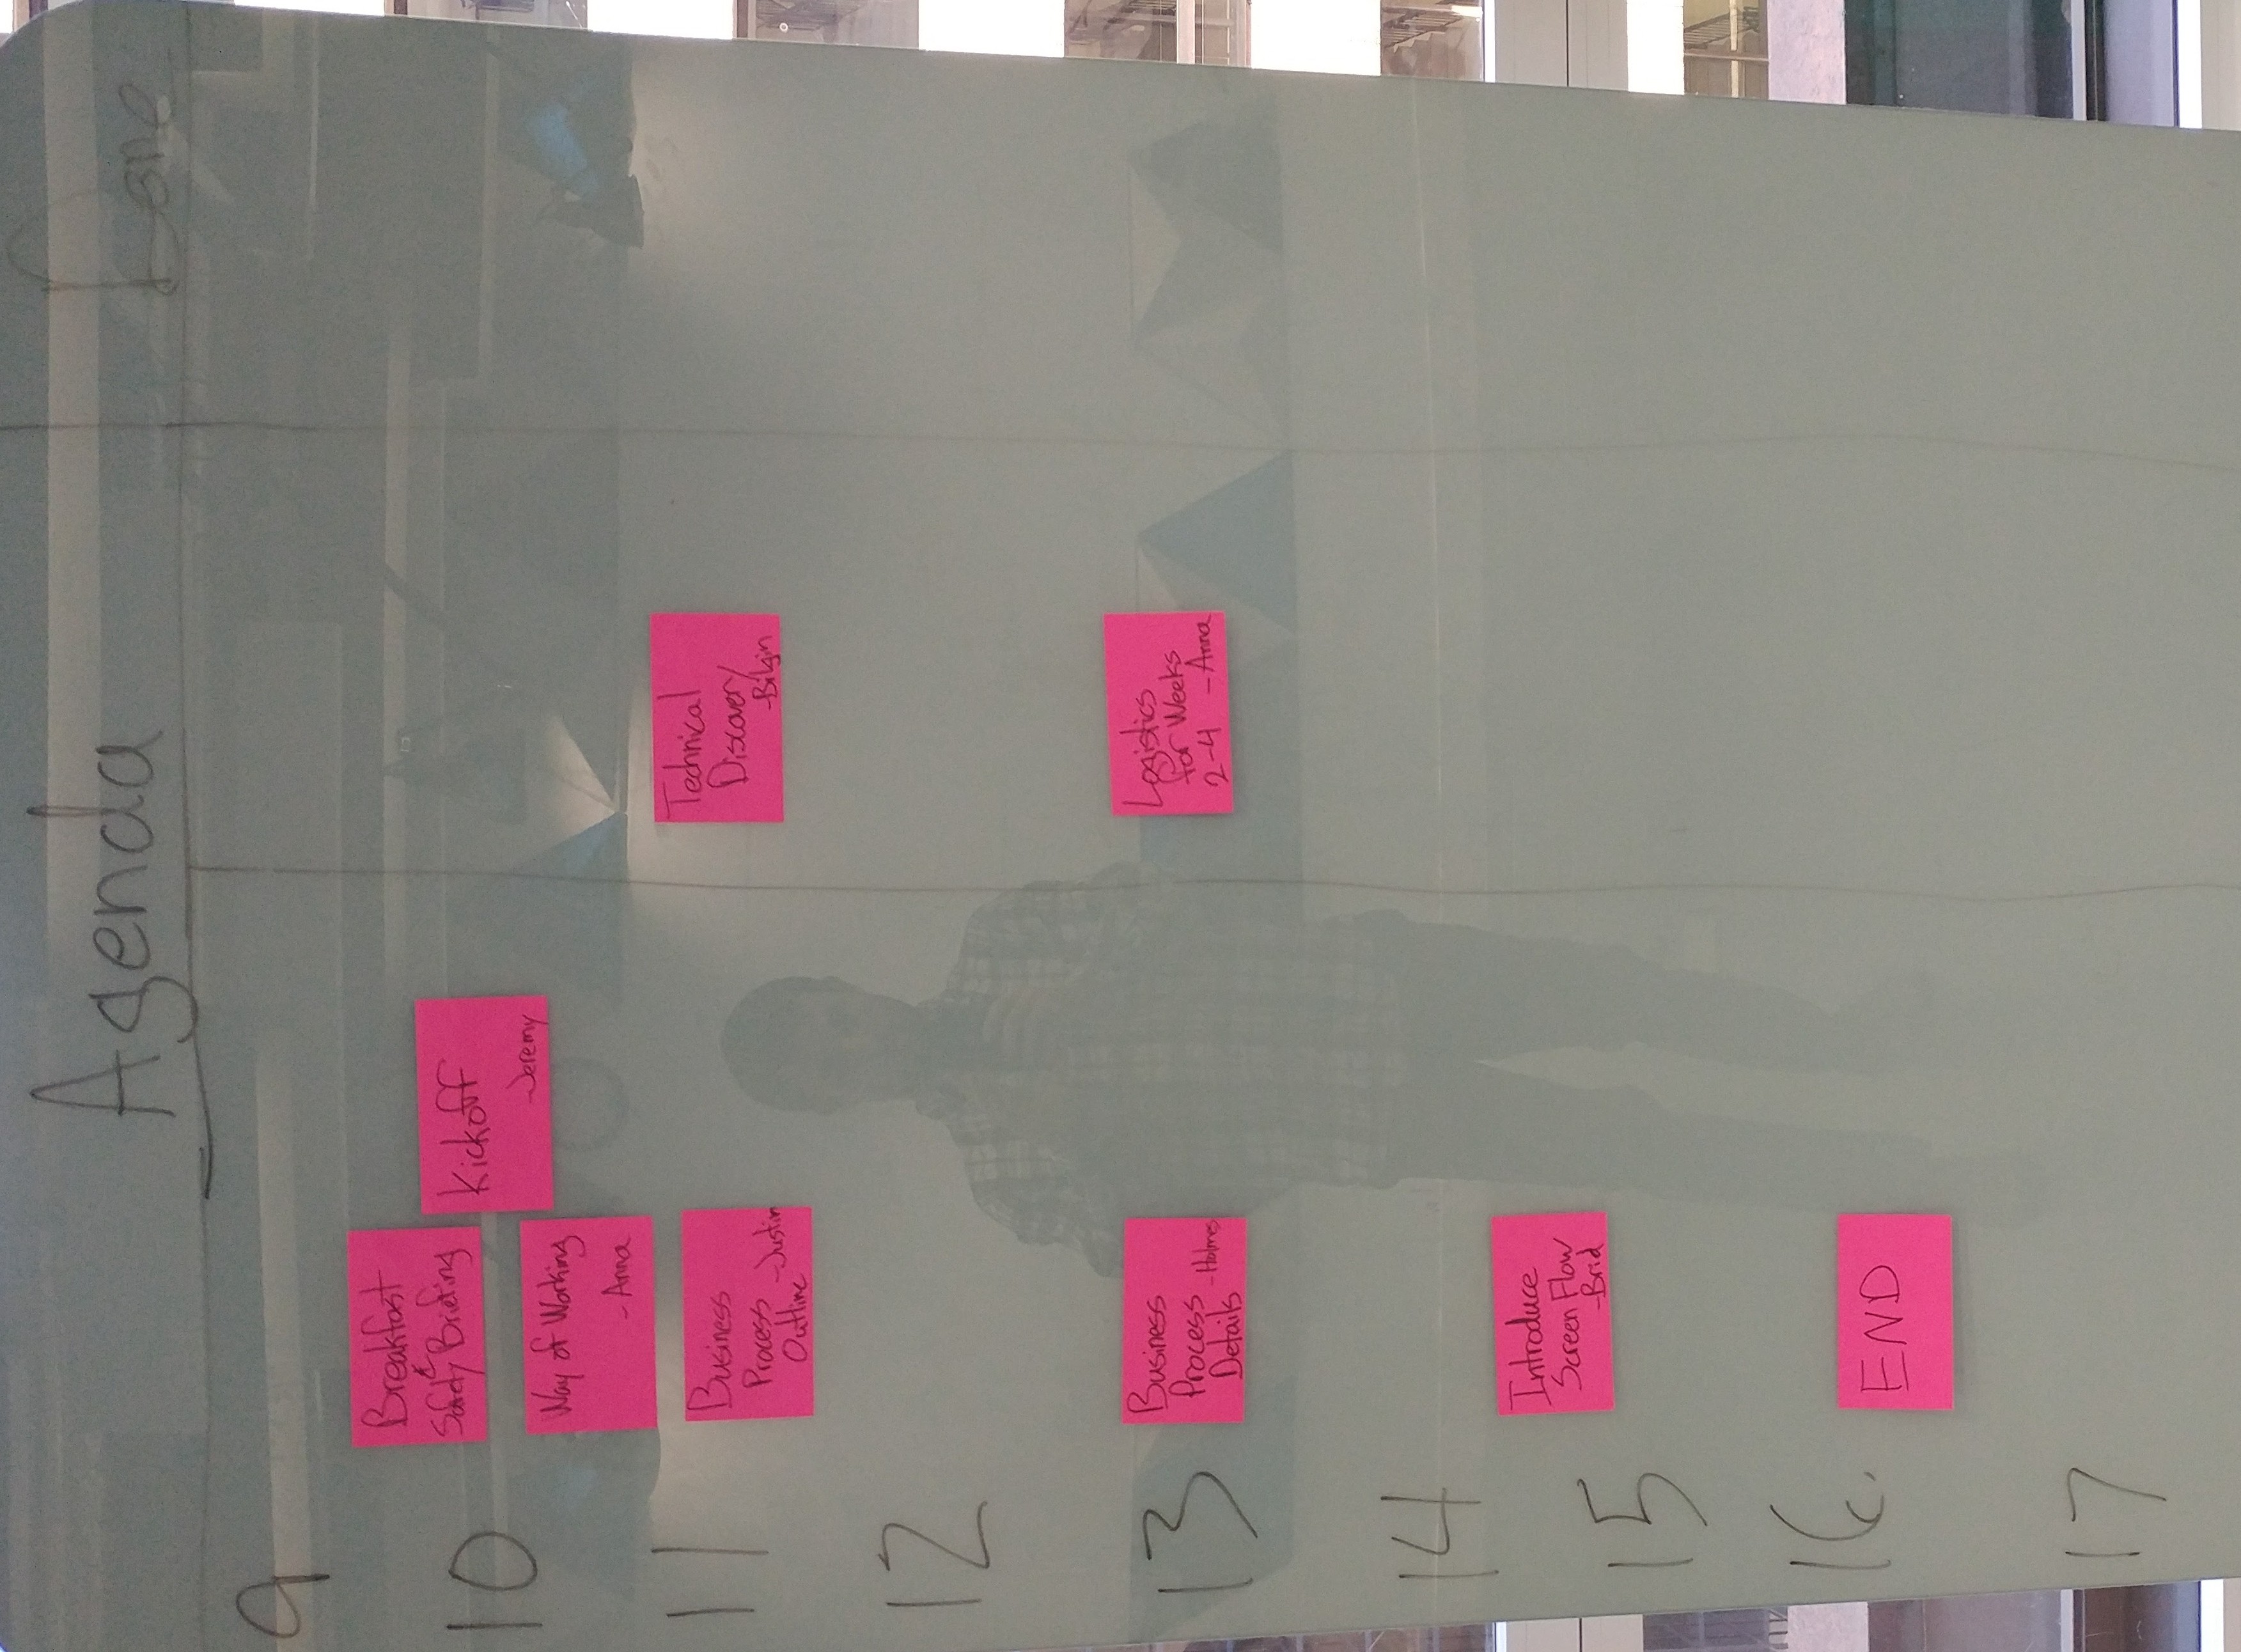 Agenda
Done
9
Breakfast
&
Safety Briefing
Kickoff
-Jeremy
10
Way of Working
- Anna
11
Business
Process
Outline
-Justin
Technical
Discovery
-Bilgin
12
13
Business
Process
Details
-Holmes
Logistics
for Weeks
2-4 - Anna
14
Introduce
Screen Flow
-Brid
15
16
END
17